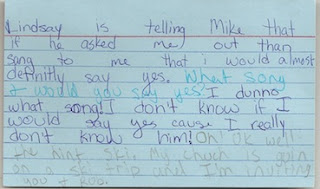 Lindsay is telling Mike that
if he asked me out than
sang to me that i would almost
definitly say yes. What song
I would you say yes? I dunno
what song! I don't know if I
would say yes cause I really
don't know him! Oh! Ok well
the hint Ski. My chuch is goin
on a ski trip and I'm inviting
you + Roo.